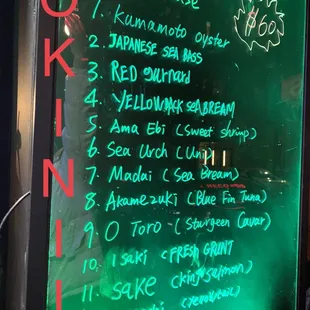 OKINII
$60
1. Kumamoto oyster
2. JAPANESE SEA BASS
3. RED Gurnard
4. YELLOWBACK SEABREAM
5. Ama Ebi (sweet shrimp)
6. Sea Urch (Uni)
7. Madai (Sea Bream)
8. Akamezuki (Blue Fin Tuna)
9. O Toro - (Sturgeon Caviar)
10. Isaki (FRESH GRUNT
11. SAKE (King Salmon)
(Yellowtail)